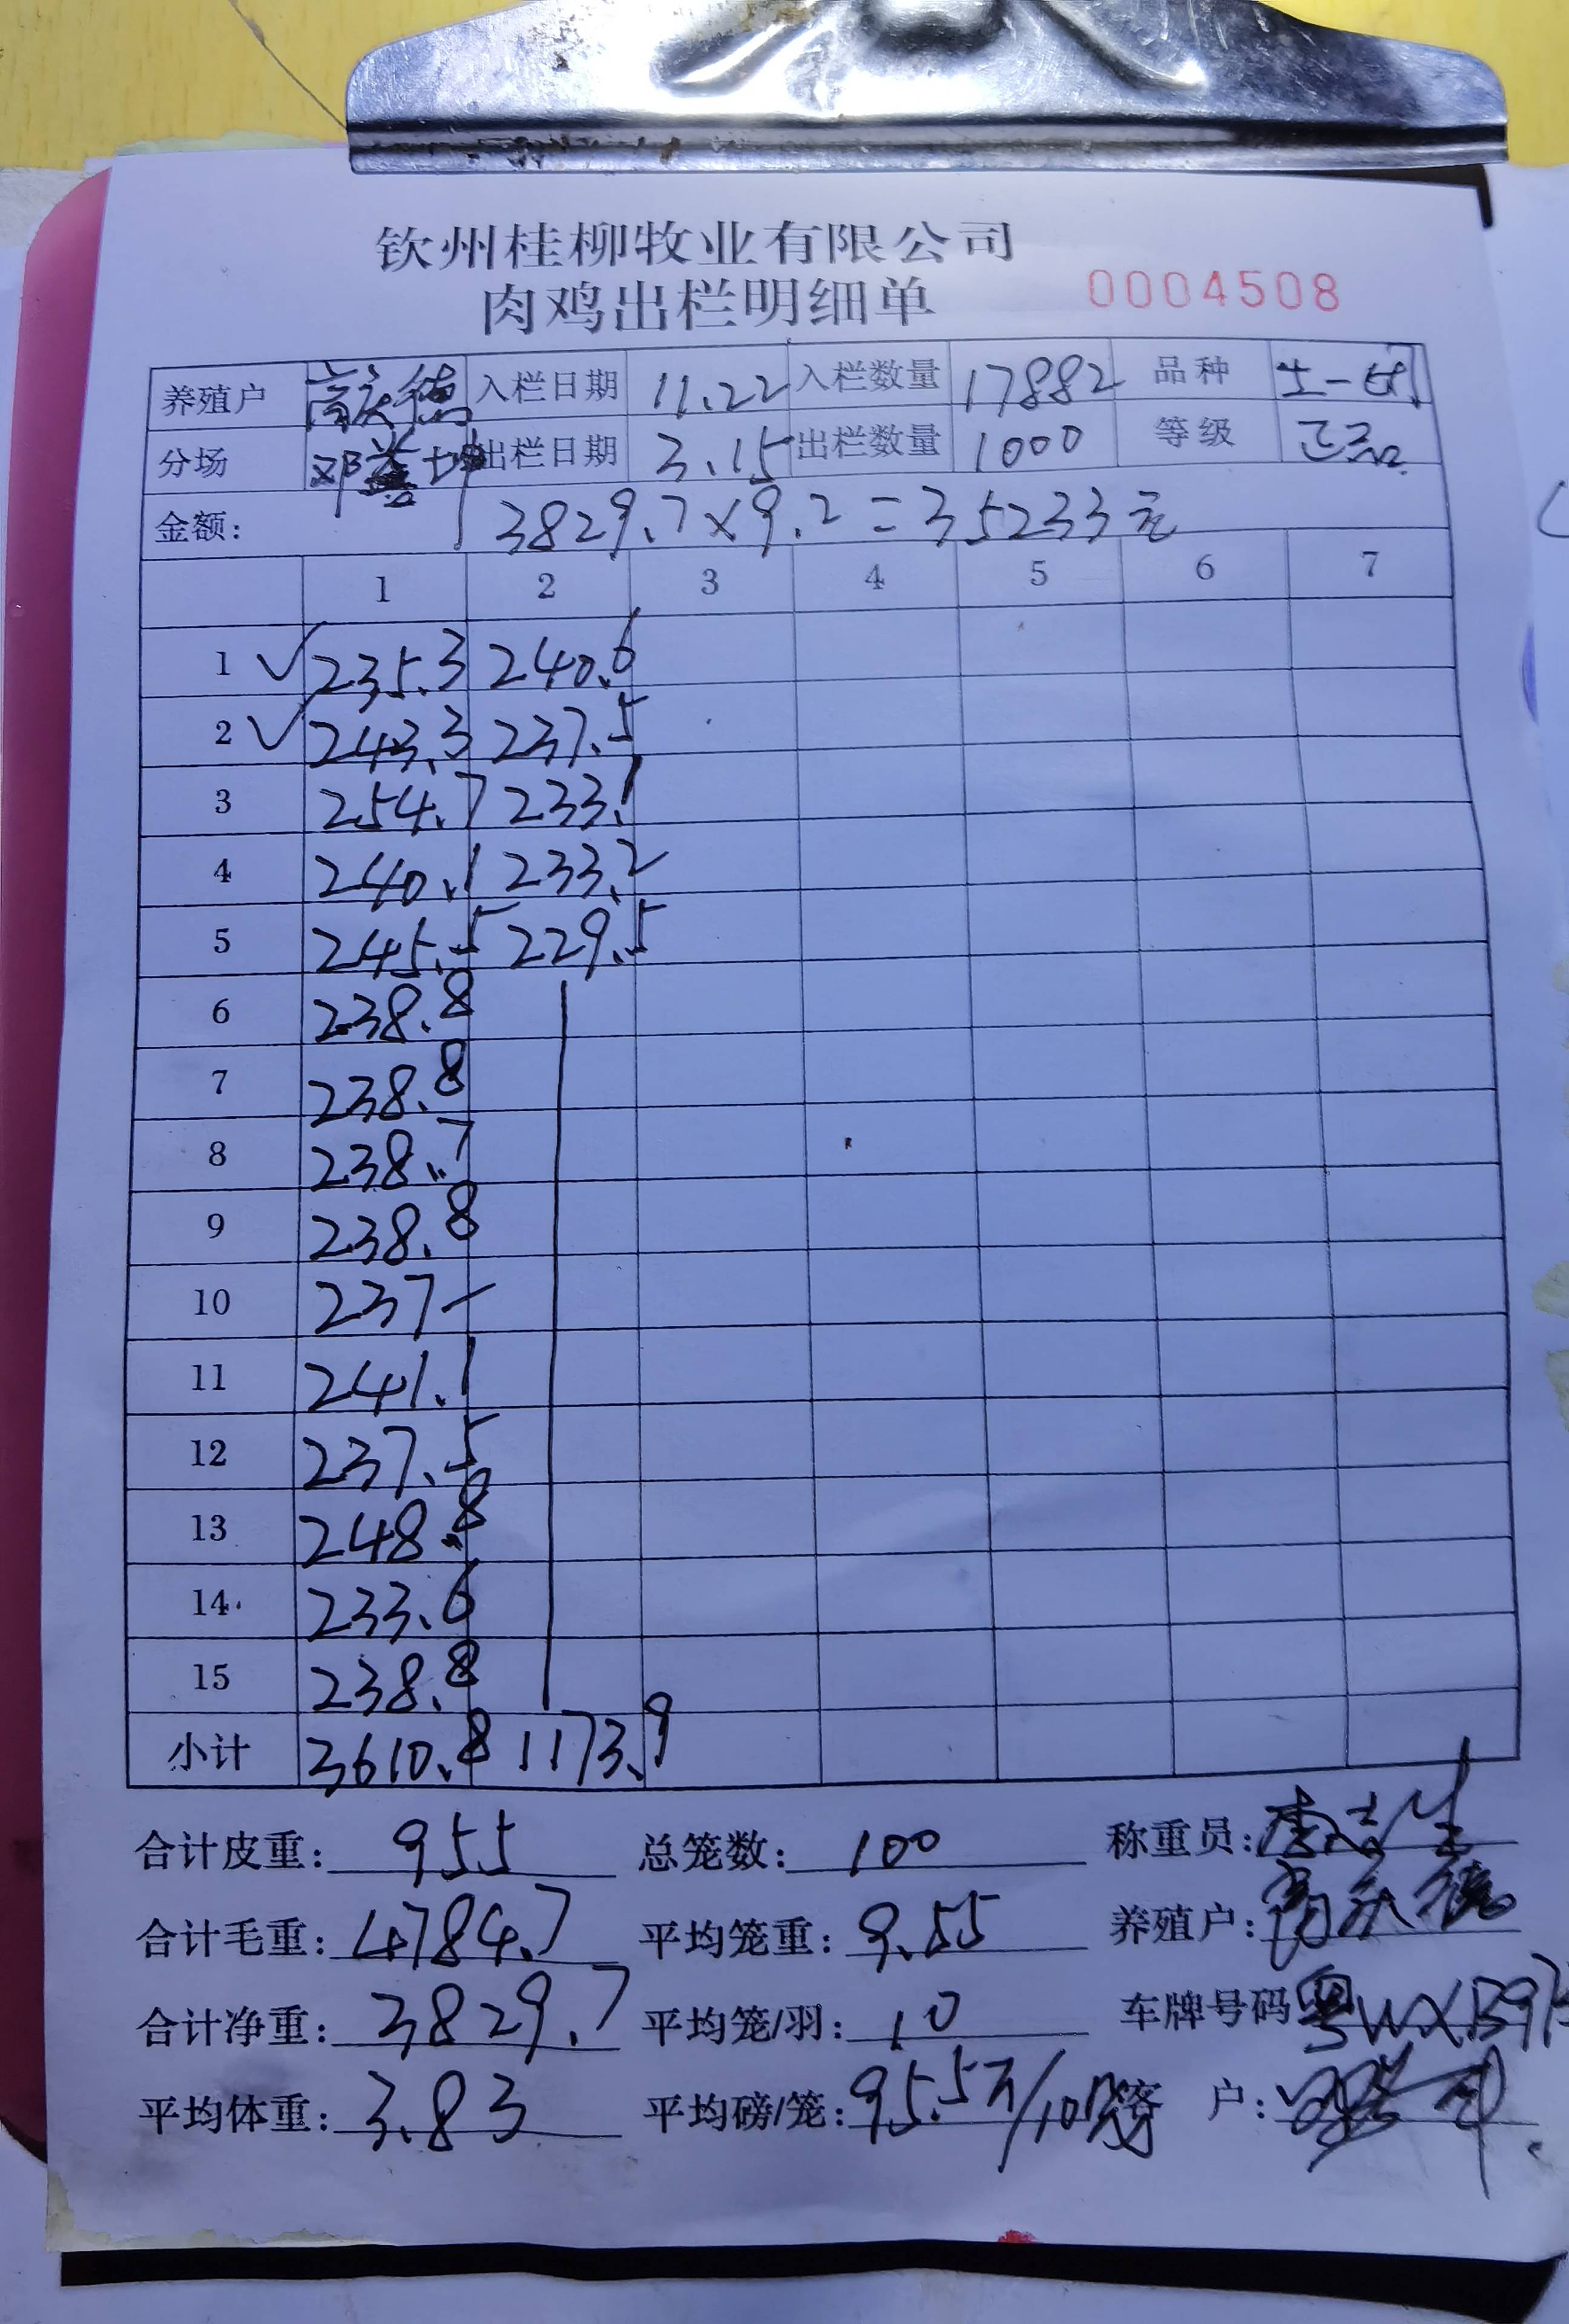 钦州桂柳牧业有限公司
肉鸡出栏明细单 0004508
养殖户 高庆德 入栏日期 11.22 入栏数量 17882 品种 土一
分场 邓 出栏日期 3.15 出栏数量 1000 等级 正品
金额: 3829.7×9.2=35233元
1 2 3 4 5 6 7
1 √ 235.3 240.6
2 √ 243.3 237.5
3 254.7 233.1
4 240.1 233.2
5 245.5 229.5
6 238.8
7 238.8
8 238.7
9 238.8
10 237-
11 241.1
12 237.5
13 248.8
14 233.6
15 238.8
小计 3610.8 1173.9
合计皮重: 955 总笼数: 100 称重员:
合计毛重: 4784.7 平均笼重: 9.55 养殖户: 高庆德
合计净重: 3829.7 平均笼/羽: 10 车牌号码
平均体重: 3.83 平均磅/笼: 95.5斤/10 客户: